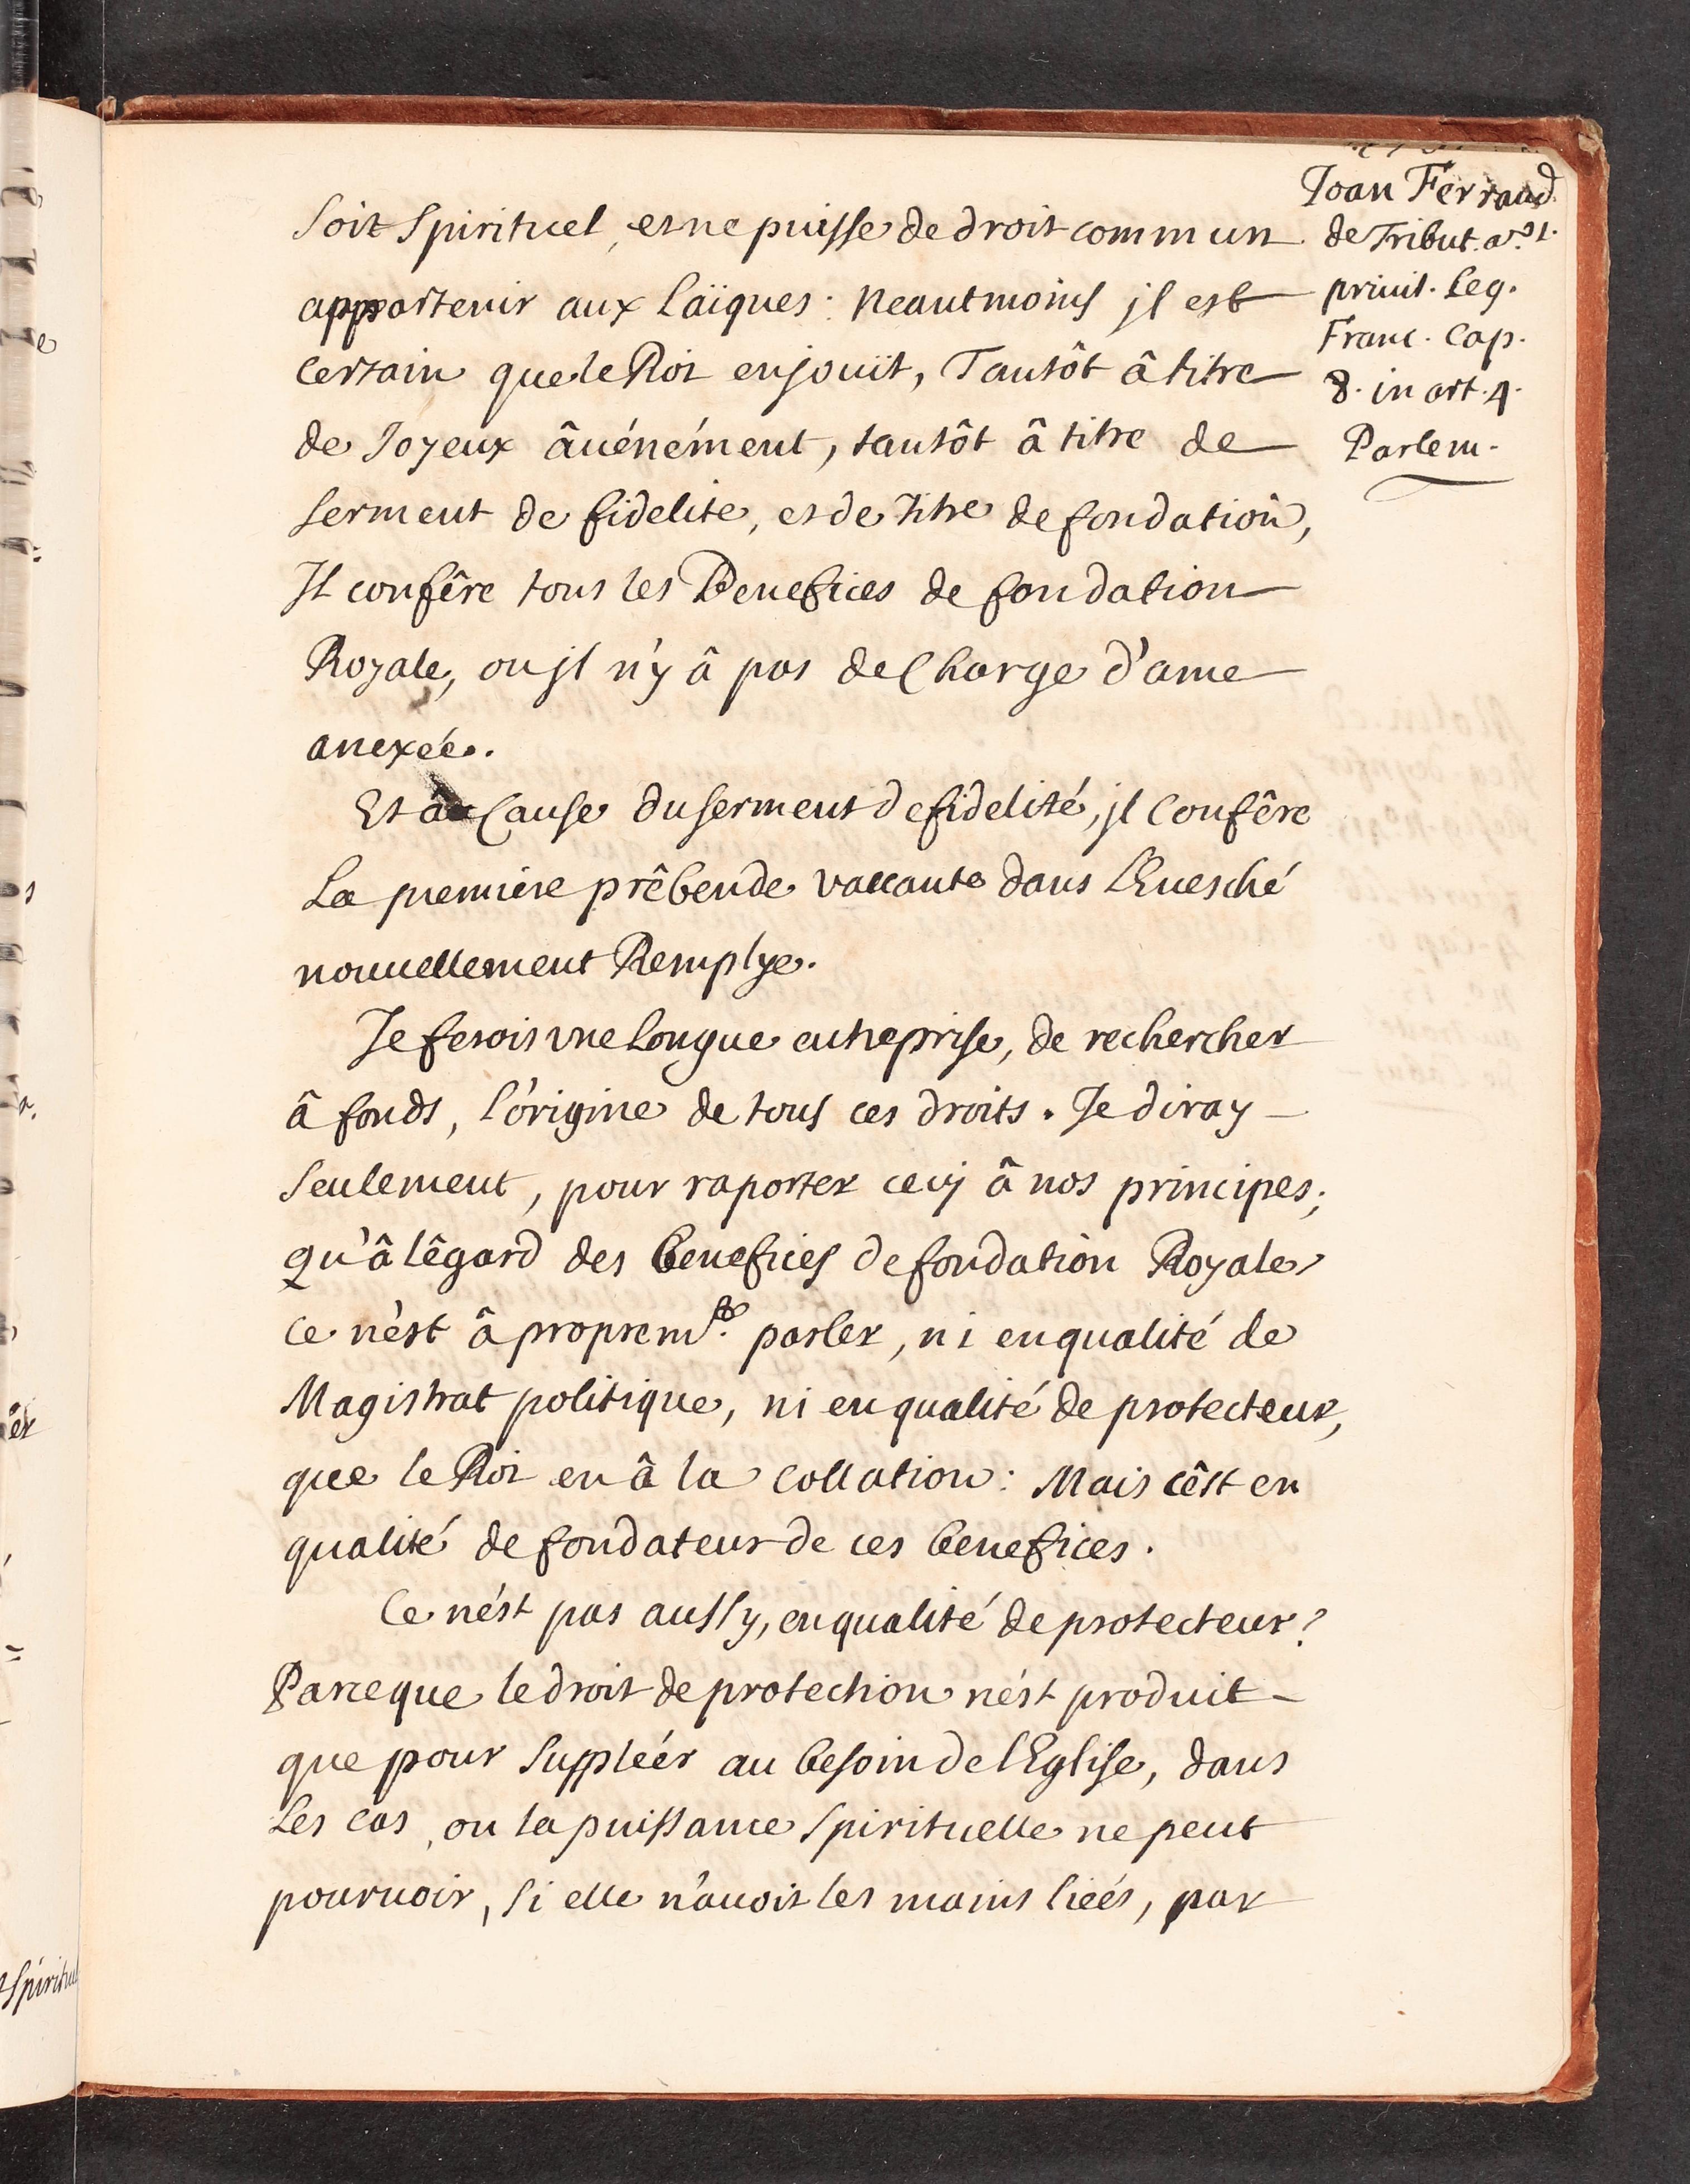 soit spirituel, et ne puisse de droit commun
appartenir aux laïques : neantmoins jl est
certain que le Roi enjouït, Tantôt â titre
de Joyeux âuénément, tantôt â titre de
serment de fidelité, et de titre de fondation,
Il confêre tous les Benefices de fondation
Royale, ou jl n'y â pas de Charge d'ame
anexéé.
Et â Cause du serment de fidelité, jl Confêre
La premiere prêbende vaccante dans l'Euesché
nouuellement Remplye.
Je ferois vne longue entreprise, de rechercher
â fonds, l'origine de tous ces droits. Je diray
seulement, pour raporter cecy â nos principes;
qu'â lêgard des benefices de fondation Royale
ce n'est â proprem.t parler, ni en qualité de
Magistrat politique, ni en qualité de protecteur,
que le Roi en â la collation : Mais cêst en
qualité de fondateur de ces benefices.
Ce n'ést pas aussy, en qualité de protecteur?
Parceque le droit de protection n'ést produit
que pour suppléér au besoin de l'Eglise, dans
Les cas, ou la puissance spirituelle ne peut
pouruoir, si elle n'auoit les mains liéés, par
Joan Ferrand.
de Tribut. a
priuil. Leg.
Franc. Cap.
8. in art. 4.
Parlem.
ér
spirituel